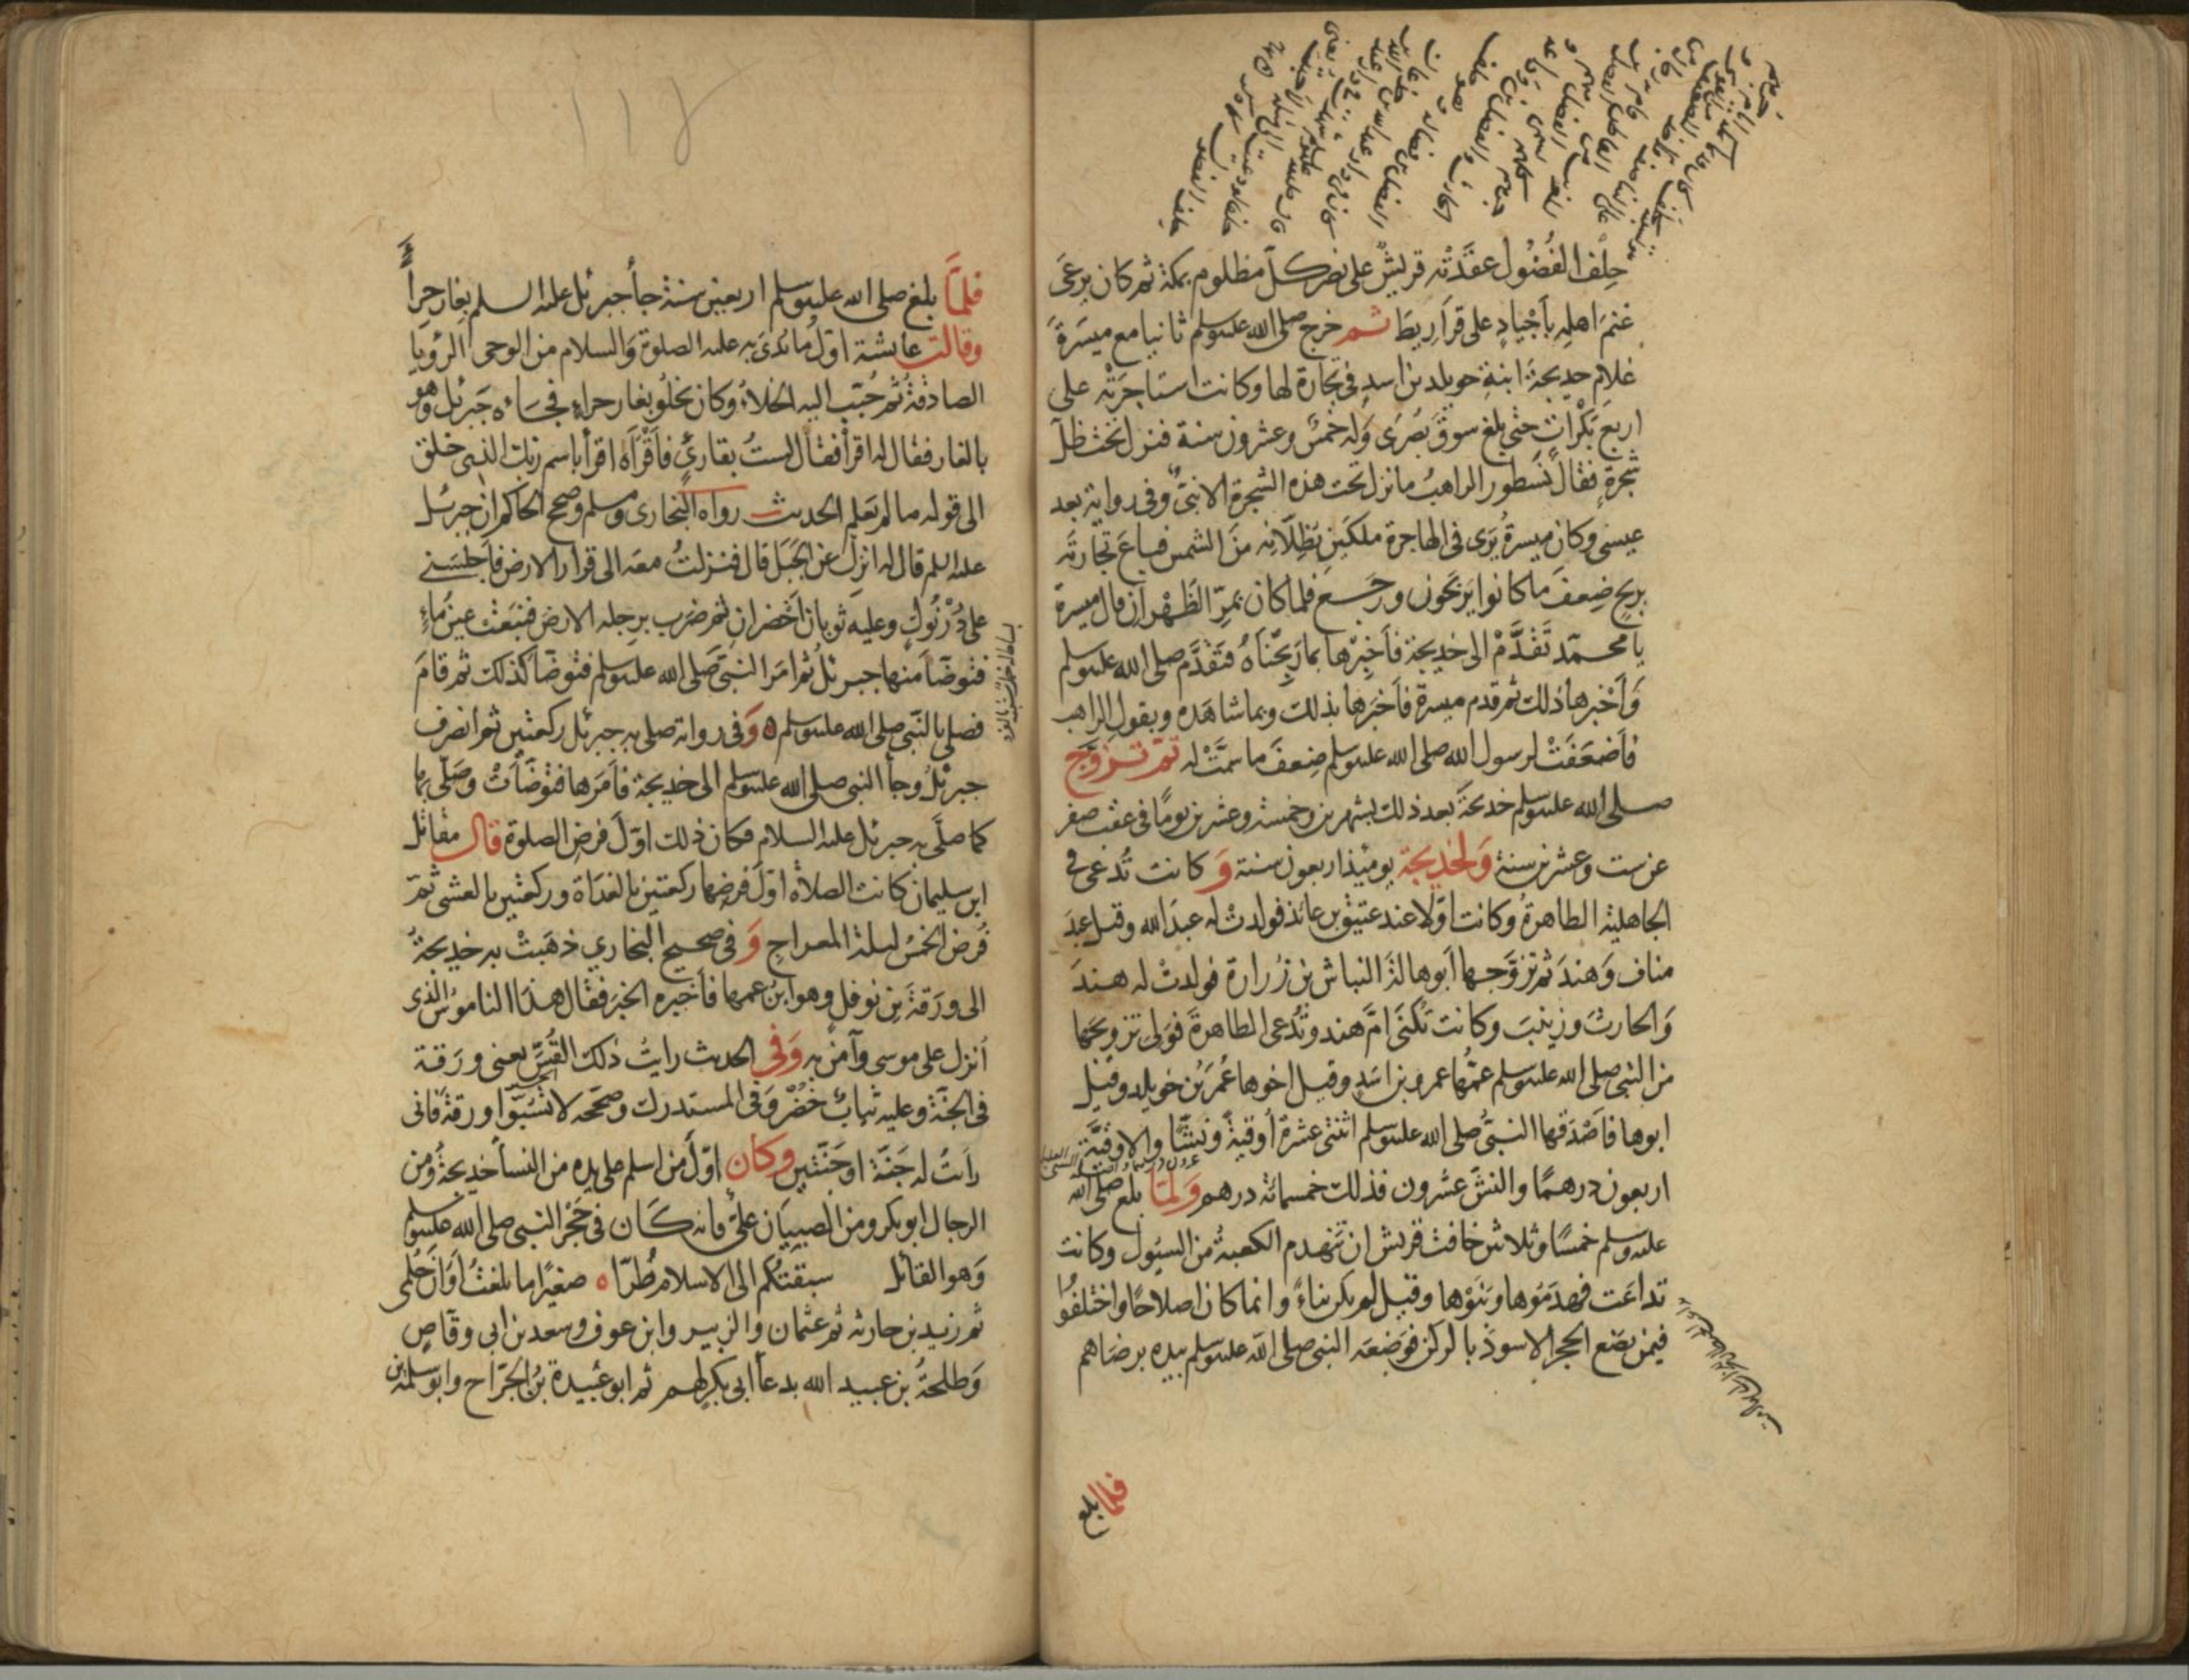 حِلْف الفُضُول عقَدَتْه قريشٌ على نصر كلّ مظلوم بمكة ثم كان يرعَى
غنمَ اهلِه بأَجْيادٍ على قرَارِيطَ ثم خرج صلى الله عليه وسلم ثانيا مع ميسَرةَ
غلام خديجةَ ابنةِ خويلد بن اسدٍ فى تجارة لها وكانت استاجرَتْه على
اربع بَكْرات حتى بلغ سوقَ بُصْرَى وله خمسٌ وعشرون سنة فنزل تحت ظلّ
شجرةٍ فقال نَسْطور الراهبُ ما نزل تحت هذه الشجرة الا نبىٌّ وفى رواية بعد
عيسى وكان ميسرةُ يَرَى فى الهاجرة ملكَين يُظِلّانِه منَ الشمس فباعَ تجارتَه
بربح ضِعفَ ما كانوا يَربَحُون ورجَع فلما كان بمرّ الظَهْران قال ميسرةُ
يا محمّد تَقَدَّمْ الى خديجة فأَخبِرْها بما رَبِحْنَاهُ فتقَدَّم صلى الله عليه وسلم
وَأَخْبرها ذلك ثم قدم ميسرةُ فاَخبَرها بذلك وبما شاهَده وبقول الراهب
فأَضعَفَتْ لرسول الله صلى الله عليه وسلم ضِعفَ ما سمَّتْ له ثم تزوّج
صلى الله عليه وسلم خديجةَ بعد ذلك بشهرين وخمسة وعشرين يومًا فى عقب صفر
عن ست وعشرين سنة وَلخديجة يومئذ اربعون سنة وَ كانت تُدعَى فى
الجاهلية الطاهرةُ وكانت اوّلا عند عتيق بن عائذ فولدتْ له عبدَ الله وقيل عبدَ
مناف وَهندَ ثم تزوَّجها اَبو هالةَ النباش بن زُرارة فولدتْ له هندَ
وَالحارثَ وزينبَ وكانت تُكنَى امَّ هند وتُدعى الطاهرةَ فوَلى تزويجَها
من النبى صلى الله عليه وسلم عمُّها عمرو بن اسَدٍ وقيل اخوها عُمَر بن خويلد وقيل
ابوها فاَصْدَقها النبىُّ صلى الله عليه وسلم اثنتى عشرة أُوقيةً ونشًّا والاوقيّة
اربعون درهمًا والنشّ عشرون فذلك خمسمائة درهم وَلمّا بلغ صلى الله
عليه وسلم خمسًا وثلاثين خافت قريش ان تنهدم الكعبةُ من السيُول وكانت
تداعَت فهدَمُوها وبَنَوْها وقيل لم يكن بناءً وانما كان اصلاحًا واختلفُوا
فيمن يضع الحجر الاسودَ بالركن فوَضعَه النبى صلى الله عليه وسلم بيده برضاهم
فلما بلغ
فلمّا بلغ صلى الله عليه وسلم اربعين سنة جاء جبرئل عليه السلم بغار حِراء
وقالت عايشة اوّل ما بُدئَ به عليه الصلوة وَالسلام من الوحى الرؤيا
الصادقة ثم حُبّبَ اليه الخلاءُ وكان يَخلُو بغار حراءٍ فجاءه جَبرئل وهو
بالغار فقال له اقرأ فقال لستُ بقارئٍ فأَقرأَه اقرأ باسم ربك الذى خلق
الى قوله ما لم يَعلم الحديث رواه البخارى ومسلم وصحح الحاكم ان جبرئل
عليه السلم قال له انزل عن الجَبَل قال فنزلتُ معَه الى قرار الارض فأجلسَنى
على دُرْنُوكٍ وعليه ثوبان اَخضرانِ ثم ضرَب برِجله الارض فنبَعَت عين ماءٍ
فتوضّأ منها جبرئلُ ثم امَر النبىَّ صلى الله عليه وسلم فتوضّأ كذلك ثم قامَ
فصلى بالنّبى صلى الله عليه وسلم ه وَفى رواية صلى به جبرئل ركعتين ثم انصرف
جبرئلُ وجاَ النبى صلى الله عليه وسلم الى خديجة فاَمَرها فتوَضّأَتْ وصَلّى بها
كما صلَّى به جبرئل عليه السلام فكان ذلك اوّلَ فرض الصلوة قال مقاتل
ابن سليمان كانت الصلاة اوّلَ فرضها ركعتين بالغدَاة وركعتين بالعشى ثم
فُرض الخمسُ ليلة المعراجِ وَ فى صحيح البخارى ذهَبتْ به خديجةُ
الى ورَقَةَ بن نوفلٍ وهو ابنُ عمها فأَخبره الخبرَ فقال هذا الناموسُ الذى
أنزل على موسى وآمنَ به وَفى الحديث رايتُ ذلك القُسّ يعنى ورَقة
فى الجنّة وعليه ثيابٌ خُضْرٌ وَفى المستدرك وصحّحه لا تَسُبّوا ورقةَ فانى
رأَيتُ له جَنّة او جَنّتين وكان اوّلَ من اسلم على يده من النسأ خديجةُ ومن
الرجال ابو بكر ومن الصبيَان علىّ فانه كان فى حَجْر النبى صلى الله عليه وسلم
وَهو القائل سبقتُكم الى الاسلام طُرّا ه صغيرًا ما بلغتُ أوَانَ حُلُمى
ثم زيد بن حارثه ثم عثمان والزبير وابن عوف وسعد بن ابى وقاصٍ
وَطلحةُ بن عبيد الله بدعأ ابى بكر لهم ثم ابو عُبيدة بن الجرّاح وابو سلمة بن